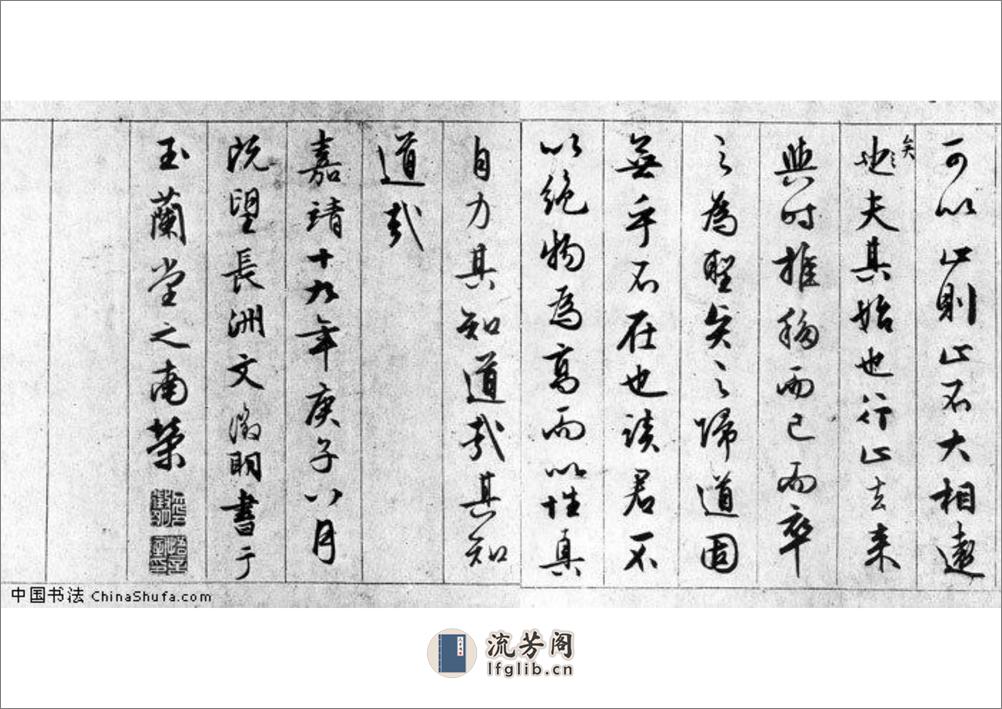 可以止則止不大相遠
也矣夫其始也行止去来
與時推移而已而卒
之為聖矣之歸道固
無乎不在也君不
以絶物為高而以性真
自力其知道哉其知
道哉
嘉靖十九年庚子八月
既望長洲文徵明書于
玉蘭堂之南榮
中国书法 ChinaShufa.com
流芳阁
lfglib.cn